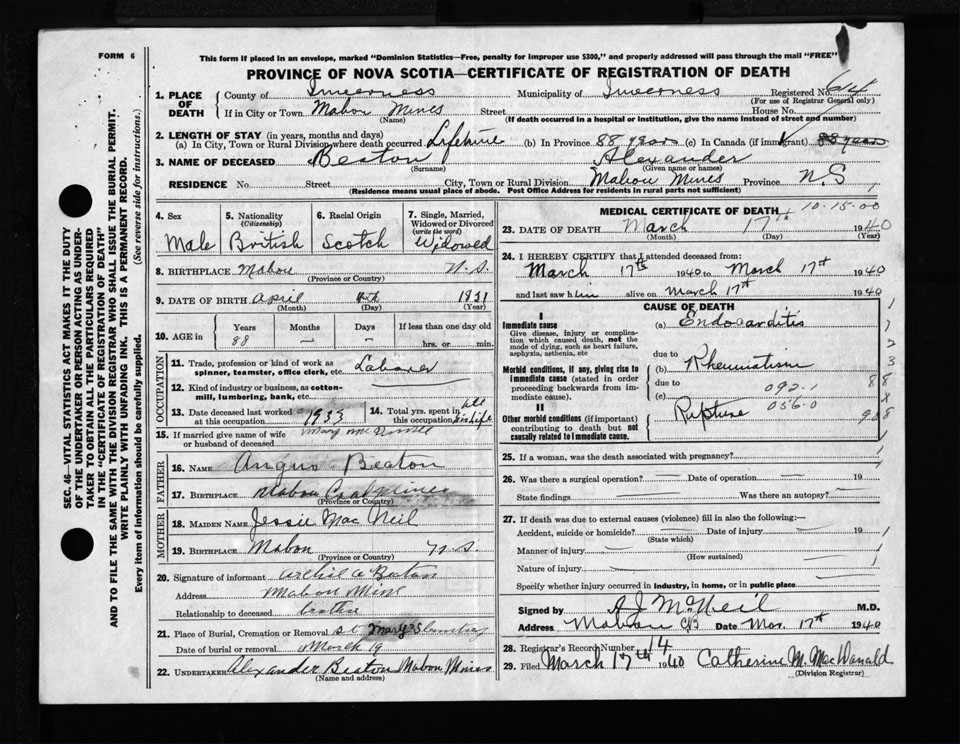 FORM 6
This form if placed in an envelope, marked "Dominion Statistics—Free, penalty for improper use $300," and properly addressed will pass through the mail "FREE"
PROVINCE OF NOVA SCOTIA—CERTIFICATE OF REGISTRATION OF DEATH
SEC. 46—VITAL STATISTICS ACT MAKES IT THE DUTY
OF THE UNDERTAKER OR PERSON ACTING AS UNDER-
TAKER TO OBTAIN ALL THE PARTICULARS REQUIRED
IN THE "CERTIFICATE OF REGISTRATION OF DEATH"
AND TO FILE THE SAME WITH THE DIVISION REGISTRAR WHO SHALL ISSUE THE BURIAL PERMIT.
WRITE PLAINLY WITH UNFADING INK. THIS IS A PERMANENT RECORD.
Every item of information should be carefully supplied. (See reverse side for instructions.)
1. PLACE OF DEATH
County of Inverness Municipality of Inverness Registered No. 614
(For use of Registrar General only)
If in City or Town Mabou Mines Street House No.
(Name) (If death occurred in a hospital or institution, give the name instead of street and number)
2. LENGTH OF STAY (in years, months and days)
(a) In City, Town or Rural Division where death occurred Lifetime (b) In Province 88 years (c) In Canada (if immigrant) 88 years
3. NAME OF DECEASED Beaton Alexander
(Surname) (Given name or names)
RESIDENCE No. Street City, Town or Rural Division Mabou Mines Province N.S
(Residence means usual place of abode. Post Office Address for residents in rural parts not sufficient)
4. Sex Male
5. Nationality (Citizenship) British
6. Racial Origin Scotch
7. Single, Married, Widowed or Divorced (write the word) Widowed
8. BIRTHPLACE Mabou N.S.
(Province or Country)
9. DATE OF BIRTH April 1831
(Month) (Day) (Year)
10. AGE in Years Months Days If less than one day old
88 — — hrs. or min.
OCCUPATION
11. Trade, profession or kind of work as spinner, teamster, office clerk, etc. Laborer
12. Kind of industry or business, as cotton-mill, lumbering, bank, etc.
13. Date deceased last worked at this occupation 1933
14. Total yrs. spent in this life
15. If married give name of wife or husband of deceased Mary
FATHER
16. NAME Angus Beaton
17. BIRTHPLACE Mabou Coal Mines
(Province or Country)
MOTHER
18. MAIDEN NAME Jessie Mac Neil
19. BIRTHPLACE Mabou N.S.
(Province or Country)
20. Signature of informant Archie A Beaton
Address Mabou Mines
Relationship to deceased brother
21. Place of Burial, Cremation or Removal St Mary's Cemetery
Date of burial or removal March 19
22. UNDERTAKER Alexander Beaton Mabou Mines
(Name and address)
MEDICAL CERTIFICATE OF DEATH 10-15-00
23. DATE OF DEATH March 17th 1940
(Month) (Day) (Year)
24. I HEREBY CERTIFY that I attended deceased from:
March 17th 1940 to March 17th 1940
and last saw him alive on March 17th 1940
CAUSE OF DEATH
I
Immediate cause (a) Endocarditis
Give disease, injury or complication which caused death, not the mode of dying, such as heart failure, asphyxia, asthenia, etc
due to
(b) Rheumatism
Morbid conditions, if any, giving rise to immediate cause (stated in order proceeding backwards from immediate cause).
due to 092.1
(c)
II
Rupture 056.0
Other morbid conditions (if important) contributing to death but not causally related to immediate cause.
25. If a woman, was the death associated with pregnancy?
26. Was there a surgical operation? Date of operation 19
State findings Was there an autopsy?
27. If death was due to external causes (violence) fill in also the following:—
Accident, suicide or homicide? Date of injury 19
(State which)
Manner of injury
(How sustained)
Nature of injury
Specify whether injury occurred in industry, in home, or in public place
Signed by A J McNeil M.D.
Address Mabou CB Date Mar. 17th 1940
28. Registrar's Record Number 14
29. Filed March 17th 1940 Catherine M. MacDonald
(Division Registrar)